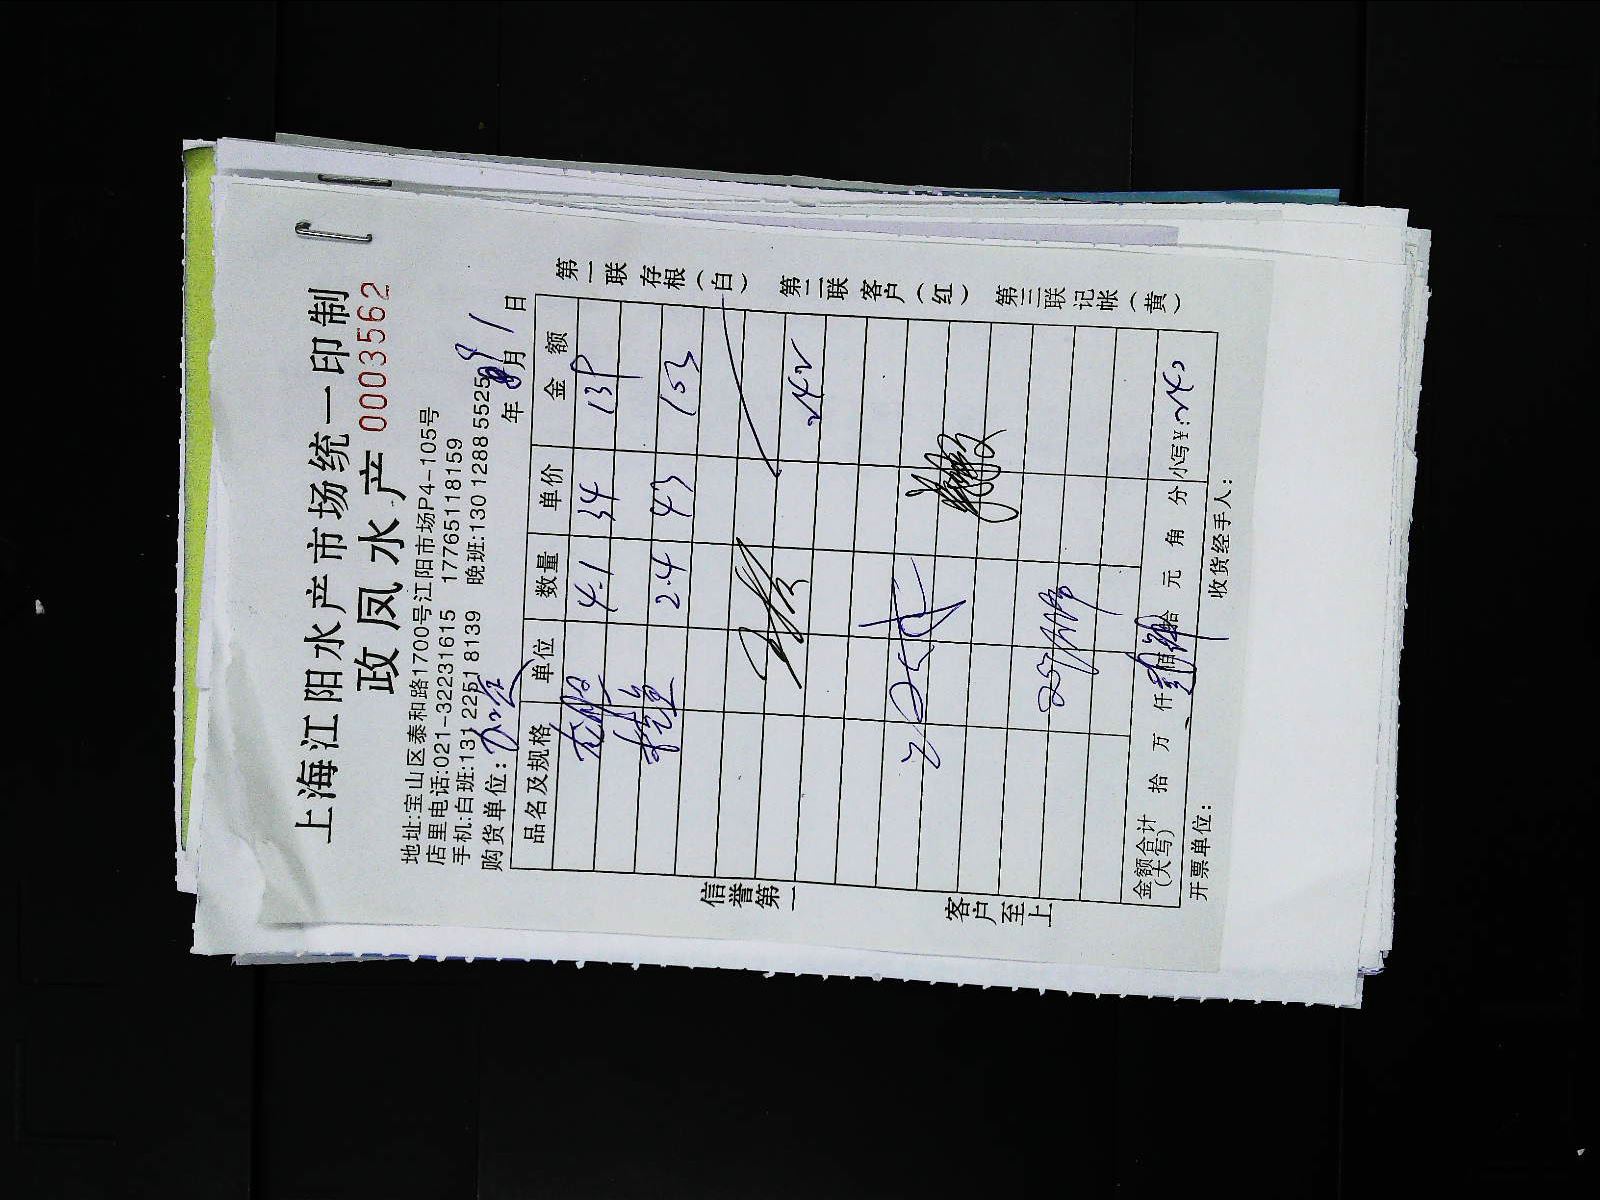 上海江阳水产市场统一印制
政凤水产 0003562
地址:宝山区泰和路1700号江阳市场P4-105号
店里电话:021-32231615 17765118159
手机:白班:131 2251 8139 晚班:130 1288 5525
购货单位: 年 9月1日
品名及规格 单位 数量 单价 金额
4.1 34 139
2.4 43 103
242
金额合计(大写) 拾 万 仟 佰 拾 元 角 分 小写¥:242
开票单位: 收货经手人:
信誉第一
客户至上
第一联存根(白)
第二联客户(红)
第三联记帐(黄)